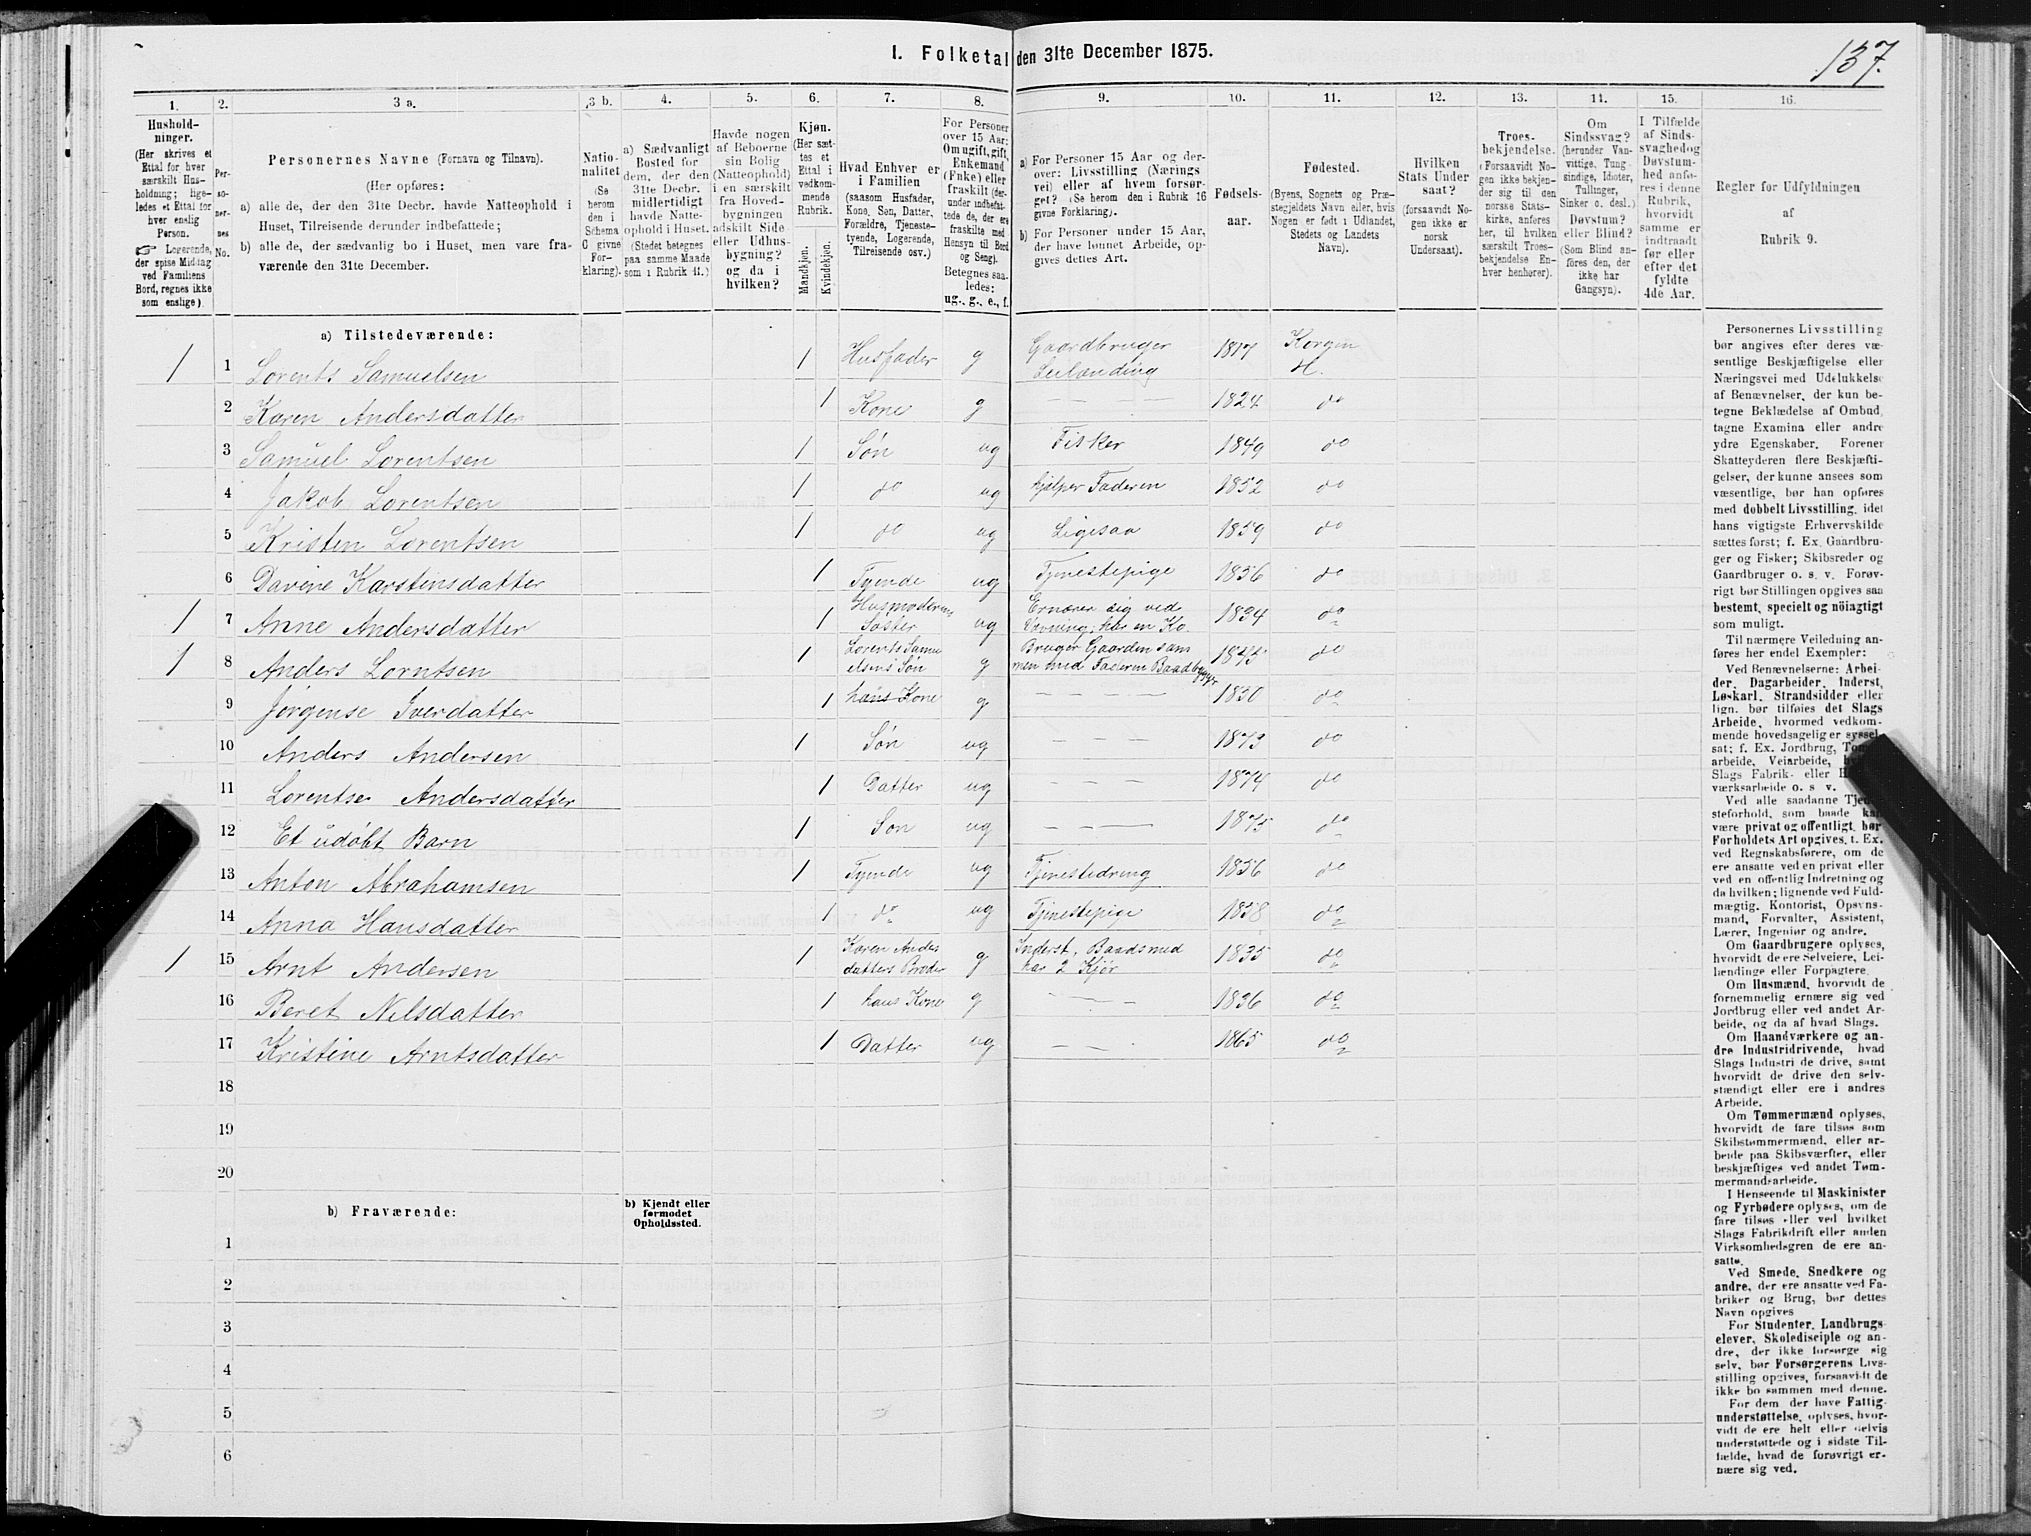 137.
I. Folketal den 31te December 1875.
1. 2. 3 a. 3 b. 4. 5. 6. 7. 8. 9. 10. 11. 12. 13. 14. 15. 16.
Hushold-
ninger.
(Her skrives et
Ettal for hver
særskilt Hus-
holdning; lige-
ledes et Ettal for
hver enslig
Person.
☞ Logerende,
der spise Middag
ved Familiens
Bord, regnes ikke
som enslige).
Per-
so-
ner-
nes
No.
Personernes Navne (Fornavn og Tilnavn).
(Her opføres:
a) alle de, der den 31te Decbr. havde Natteophold i
Huset, Tilreisende derunder indbefattede;
b) alle de, der sædvanlig bo i Huset, men vare fra-
værende den 31te December.
Natio-
nalitet
(Se
herom
den i
Schema
C givne
For-
klaring).
a) Sædvanligt
Bosted for
dem, der den
31te Decbr.
midlertidigt
havde Natte-
ophold i Huset.
(Stedet betegnes
paa samme Maade
som i Rubrik 11.)
Havde nogen
af Beboerne
sin Bolig
(Natteophold)
i en særskilt
fra Hoved-
bygningen
adskilt Side-
eller Udhus-
bygning?
og da i
hvilken?
Kjøn.
(Her sæt-
tes et
Ettal i
vedkom-
mende
Rubrik.
Mandkjøn.
Kvindekjøn.
Hvad Enhver er
i Familien
(saasom Husfader,
Kone, Søn, Datter,
Forældre, Tjeneste-
tyende, Logerende,
Tilreisende osv.)
For Personer
over 15 Aar:
Om ugift, gift,
Enkemand
(Enke) eller
fraskilt (der-
under indbefat-
tede de, der ere
fraskilte med
Hensyn til Bord
og Seng).
Betegnes saa-
ledes:
ug., g., e., f.
a) For Personer 15 Aar og der-
over: Livsstilling (Nærings
vei) eller af hvem forsør-
get? (Se herom den i Rubrik 16
givne Forklaring.)
b) For Personer under 15 Aar,
der have lønnet Arbeide, op-
gives dettes Art.
Fødsels-
aar.
Fødested.
(Byens, Sognets og Præ-
stegjeldets Navn eller, hvis
Nogen er født i Udlandet,
Stedets og Landets
Navn).
Hvilken
Stats Under
saat?
(forsaavidt No-
gen ikke er
norsk
Undersaat).
Troes-
bekjendelse.
(Forsaavidt No-
gen ikke bekjen-
der sig til den
norske Stats-
kirke, anføres
her, til hvilken
særskilt Troes-
bekjendelse En-
hver henhører).
Om
Sindssvag?
(herunder Van-
vittige, Tung-
sindige, Idioter,
Tullinger,
Sinker o. desl.)
Døvstum?
eller Blind?
(Som Blind an-
føres den, der
ikke har
Gangsyn).
I Tilfælde
af Sinds-
svaghedog
Døvstum-
hed anfø-
res i denne
Rubrik,
hvorvidt
samme er
indtraadt
før eller
efter det
fyldte
4de Aar.
Regler for Udfyldningen
af
Rubrik 9.
a) Tilstedeværende:
1 1 Lorents Samuelsen 1 Husfader g Gaardbruger Leilænding 1817 Korgen H.
2 Karen Andersdatter 1 Kone g — — — 1824 do
3 Samuel Lorentsen 1 Søn ug Fisker 1849 do
4 Jakob Lorentsen 1 do ug hjælper Faderen 1852 do
5 Kristen Lorentsen 1 do ug Ligesaa 1859 do
6 Davine Karstensdatter 1 Tyende ug Tjenestepige 1856 do
1 7 Anne Andersdatter 1 Husmoderens Søster ug Ernærer sig ved Vævning; har en Ko. 1834 do
1 8 Anders Lorntsen 1 Lorents Samuelsens Søn g Bruger Gaarden sammen med Faderen Baadbygger 1845 do
9 Jørgense Iverdatter 1 hans Kone g — — — 1830 do
10 Anders Andersen 1 Søn ug — — 1873 do
11 Lorentse Andersdatter 1 Datter ug — — — 1874 do
12 Et udøbt Barn 1 Søn ug — — — 1875 do
13 Anton Abrahamsen 1 Tyende ug Tjenestedreng 1856 do
14 Anna Hansdatter 1 do ug Tjenestepige 1858 do
1 15 Arnt Andersen 1 Karen Andersdatters Broder g Inderst, Baadsmed har 2 Kjør 1835 do
16 Beret Nilsdatter 1 hans Kone g — — - 1836 do
17 Kristine Arntsdatter 1 Datter ug — — - 1865 do
18
19
20
b) Fraværende:
b) Kjendt eller
formodet
Opholdssted.
1
2
3
4
5
6
Personernes Livsstilling
bør angives efter deres væ-
sentlige Beskjæftigelse eller
Næringsvei med Udelukkelse
af Benævnelser, der kun be-
tegne Beklædelse af Ombud,
tagne Examina eller andre
ydre Egenskaber. Forener
Skatteyderen flere Beskjæfti-
gelser, der kunne ansees som
væsentlige, bør han opføres
med dobbelt Livsstilling, idet
hans vigtigste Erhvervskilde
sættes først; f. Ex. Gaardbru-
ger og Fisker; Skibsreder og
Gaardbruger o. s. v. Forøv-
rigt bør Stillingen opgives saa
bestemt, specielt og nöiagtigt
som muligt.
Til nærmere Veiledning an-
føres her endel Exempler:
Ved Benævnelserne: Arbei-
der, Dagarbeider, Inderst,
Løskarl, Strandsidder eller
lign. bør tilføies det Slags
Arbeide, hvormed vedkom-
mende hovedsagelig er syssel-
sat; f. Ex. Jordbrug, Tom-
arbeide, Veiarbeide,
Slags Fabrik- eller
værksarbeide o. s v.
Ved alle saadanne Tjene-
steforhold, som baade kan
være privat og offentligt, bør
Forholdets Art opgives, t. Ex.
ved Regnskabsførere, om de
ere ansatte ved en privat eller
ved en offentlig Indretning og
da hvilken; lignende ved Fuld-
mægtig. Kontorist, Opsyns-
mand, Forvalter, Assistent,
Lærer, Ingeniør og andre.
Om Gaardbrugere oplyses,
hvorvidt de ere Selveiere, Lei-
lændinge eller Forpagtere.
Om Husmænd, hvorvidt de
fornemmelig ernære sig ved
Jordbrug eller ved andet Ar-
beide, og da af hvad Slags.
Om Haandværkere og an-
dre Industridrivende, hvad
Slags Industri de drive, samt
hvorvidt de drive den selv-
stændigt eller ere i andres
Arbeide.
Om Tømmermænd oplyses,
hvorvidt de fare tilsøs som
Skibstømmermænd, eller ar-
beide paa Skibsværfter, eller
beskjæftiges ved andet Tøm-
mermandsarbeide.
I Henseende til Maskinister
og Fyrbødere oplyses, om de
fare tilsøs eller ved hvilket
Slags Fabrikdrift eller anden
Virksomhedsgren de ere an-
satte.
Ved Smede, Snedkere og
andre, der ere ansatte ved Fa-
briker og Brug, bør dettes
Navn opgives
For Studenter, Landbrugs-
elever, Skoledisciple og an-
dre, der ikke forsørge sig
selv, bør Forsørgerens Livs-
stilling opgives, forsaavidt de
ikke bo sammen med denne.
For dem, der have Fattig-
understøttelse, oplyses, hvor-
vidt de ere helt eller delvis
understøttede og i sidste Til-
fælde, hvad de forøvrigt er-
nære sig ved.